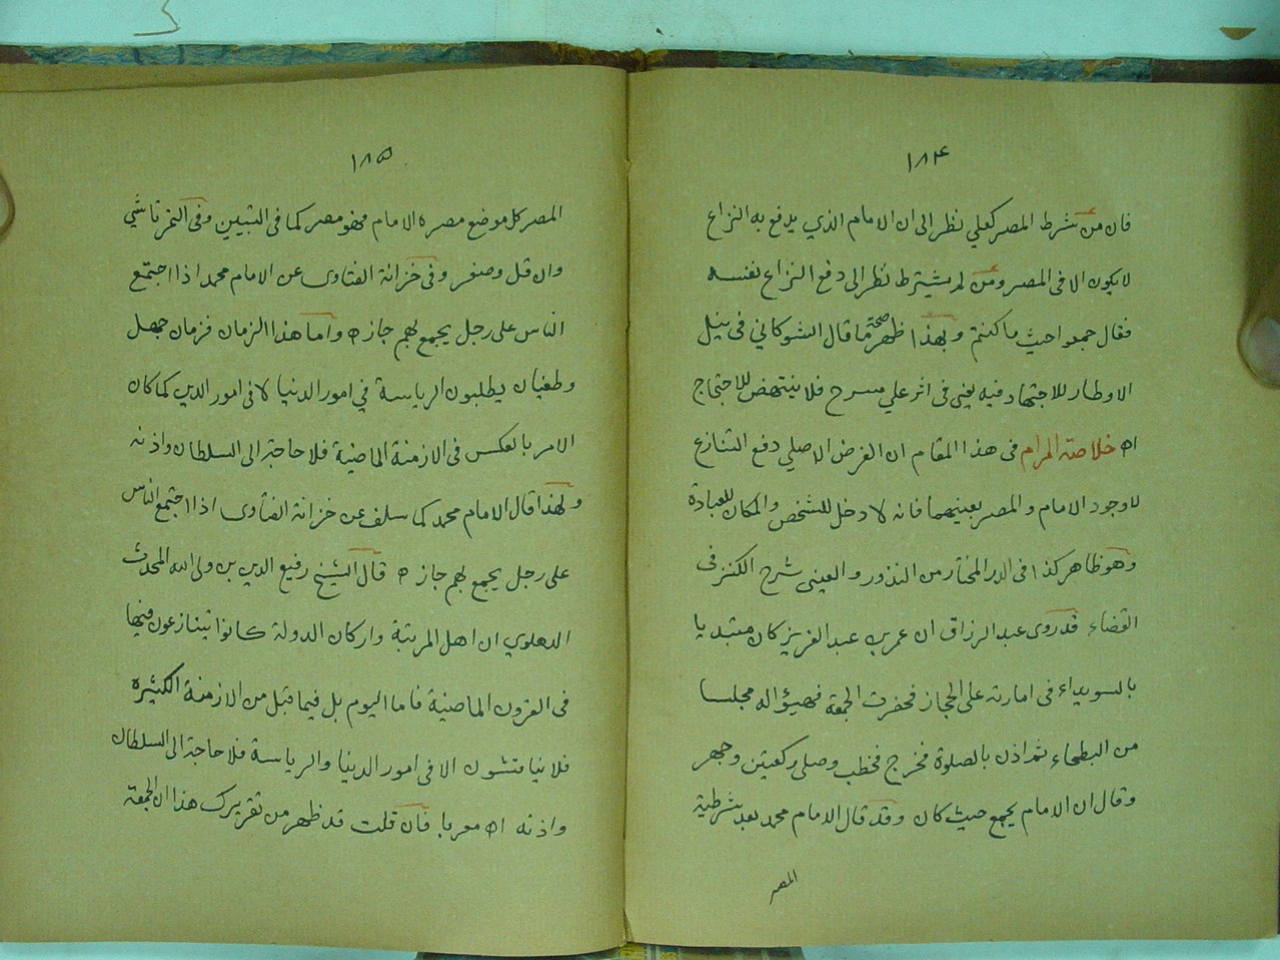 ١٨٤
فان من شرط المصر كعلي نظر الى ان الامام الذي يدفع به النزاع
لا يكون الا فى المصر ومن لم يشترط نظر الى دفع النزاع نفسه
فقال جمعوا حيث ما كنتم وبهذا ظهر صحة ما قال الشوكاني فى نيل
الاوطار للاجتهاد فيه يعنى فى اثر علي مسرح فلا ينتهض للاحتجاج
اه خلاصة المرام فى هذا المقام ان الغرض الاصلي دفع التنازع
لا وجود الامام والمصر بعينهما فانه لا دخل للشخص والمكان للعبادة
وهو ظاهر كذا فى الدر المختار من النذور والعينى شرح الكنز فى
القضاء قد روى عبد الرزاق ان عمر بن عبد العزيز كان متبديا
بالسويداء فى امارته على الحجاز فحضرت الجمعة فهيؤا له مجلسا
من البطحاء ثم اذن بالصلوة فخرج فخطب وصلى ركعتين وجهر
وقال ان الامام يجمع حيث كان وقد قال الامام محمد بعد شرطية
المصر
١٨٥
المصر كل موضع مصره الامام فهو مصر كما فى التبيين وفى التمرتاشي
وان قل وصغر وفى خزانة الفتاوى عن الامام محمد اذا اجتمع
الناس على رجل يجمع لهم جاز اه واما هذا الزمان فزمان جهل
وطغيان يطلبون الرياسة في امور الدنيا لا فى امور الدين كما كان
الامر بالعكس فى الازمنة الماضية فلا حاجة الى السلطان واذنه
ولهذا قال الامام محمد كما سلف عن خزانة الفتاوى اذا اجتمع الناس
على رجل يجمع لهم جاز اه قال الشيخ رفيع الدين بن ولى الله المحدث
الدهلوي ان اهل المرتبة واركان الدولة كانوا يتنازعون فيها
فى القرون الماضية فاما اليوم بل فيما قبل من الازمنة الكثيرة
فلا يناقشون الا فى امور الدنيا والرياسة فلا حاجة الى السلطان
واذنه اه معربا فان قلت قد ظهر من تقريرك هذا ان الجمعة